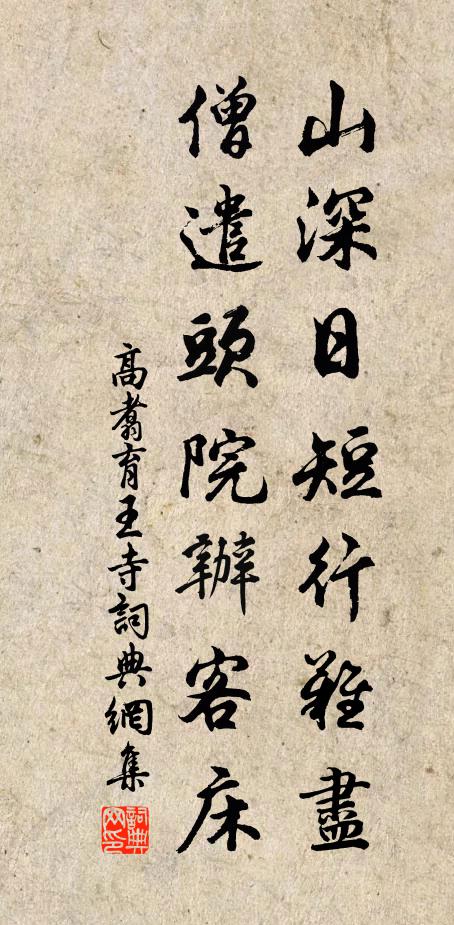 山深日短行難盡
僧遣頭院辦客床
高翥育王寺詞典網集
詞典網印